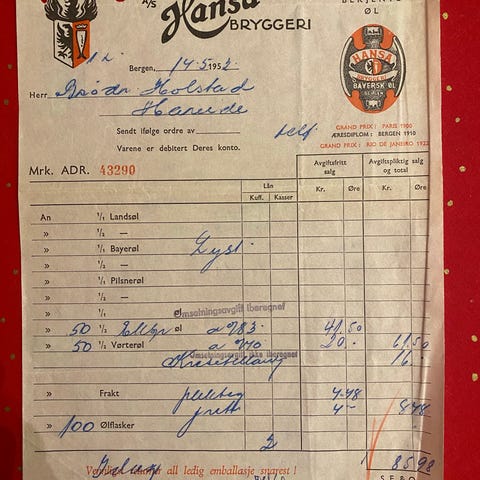 BERJENTE
A/S Hansa ØL
BRYGGERI
HANSA
BRYGGERI
BAYERSK ØL
BERGEN
Bergen, 14-5 1952.
Herr Holstad
GRAND PRIX: PARIS 1900
ÆRESDIPLOM: BERGEN 1910
GRAND PRIX: RIO DE JANEIRO 1922
Sendt ifølge ordre av
Varene er debitert Deres konto.
Mrk. ADR. 43290
Lån Avgiftsfritt salg Avgiftspliktig salg og total
Kuff. Kasser Kr. Øre Kr. Øre
An 1/1 Landsøl
» 1/2 —
» 1/1 Bayerøl
» 1/2 —
» 1/1 Pilsnerøl
» 1/2 —
» 1/1
Omsetningsavgift iberegnet
» 50 1/2 øl a 0/83. 41.50
» 50 1/2 Vørterøl a 20.- 61.50
Omsetningsavgift ikke iberegnet
16.-
» Frakt 4.48
» 4- 8.48
» 100 Ølflasker
2
all ledig emballasje snarest !
85.98